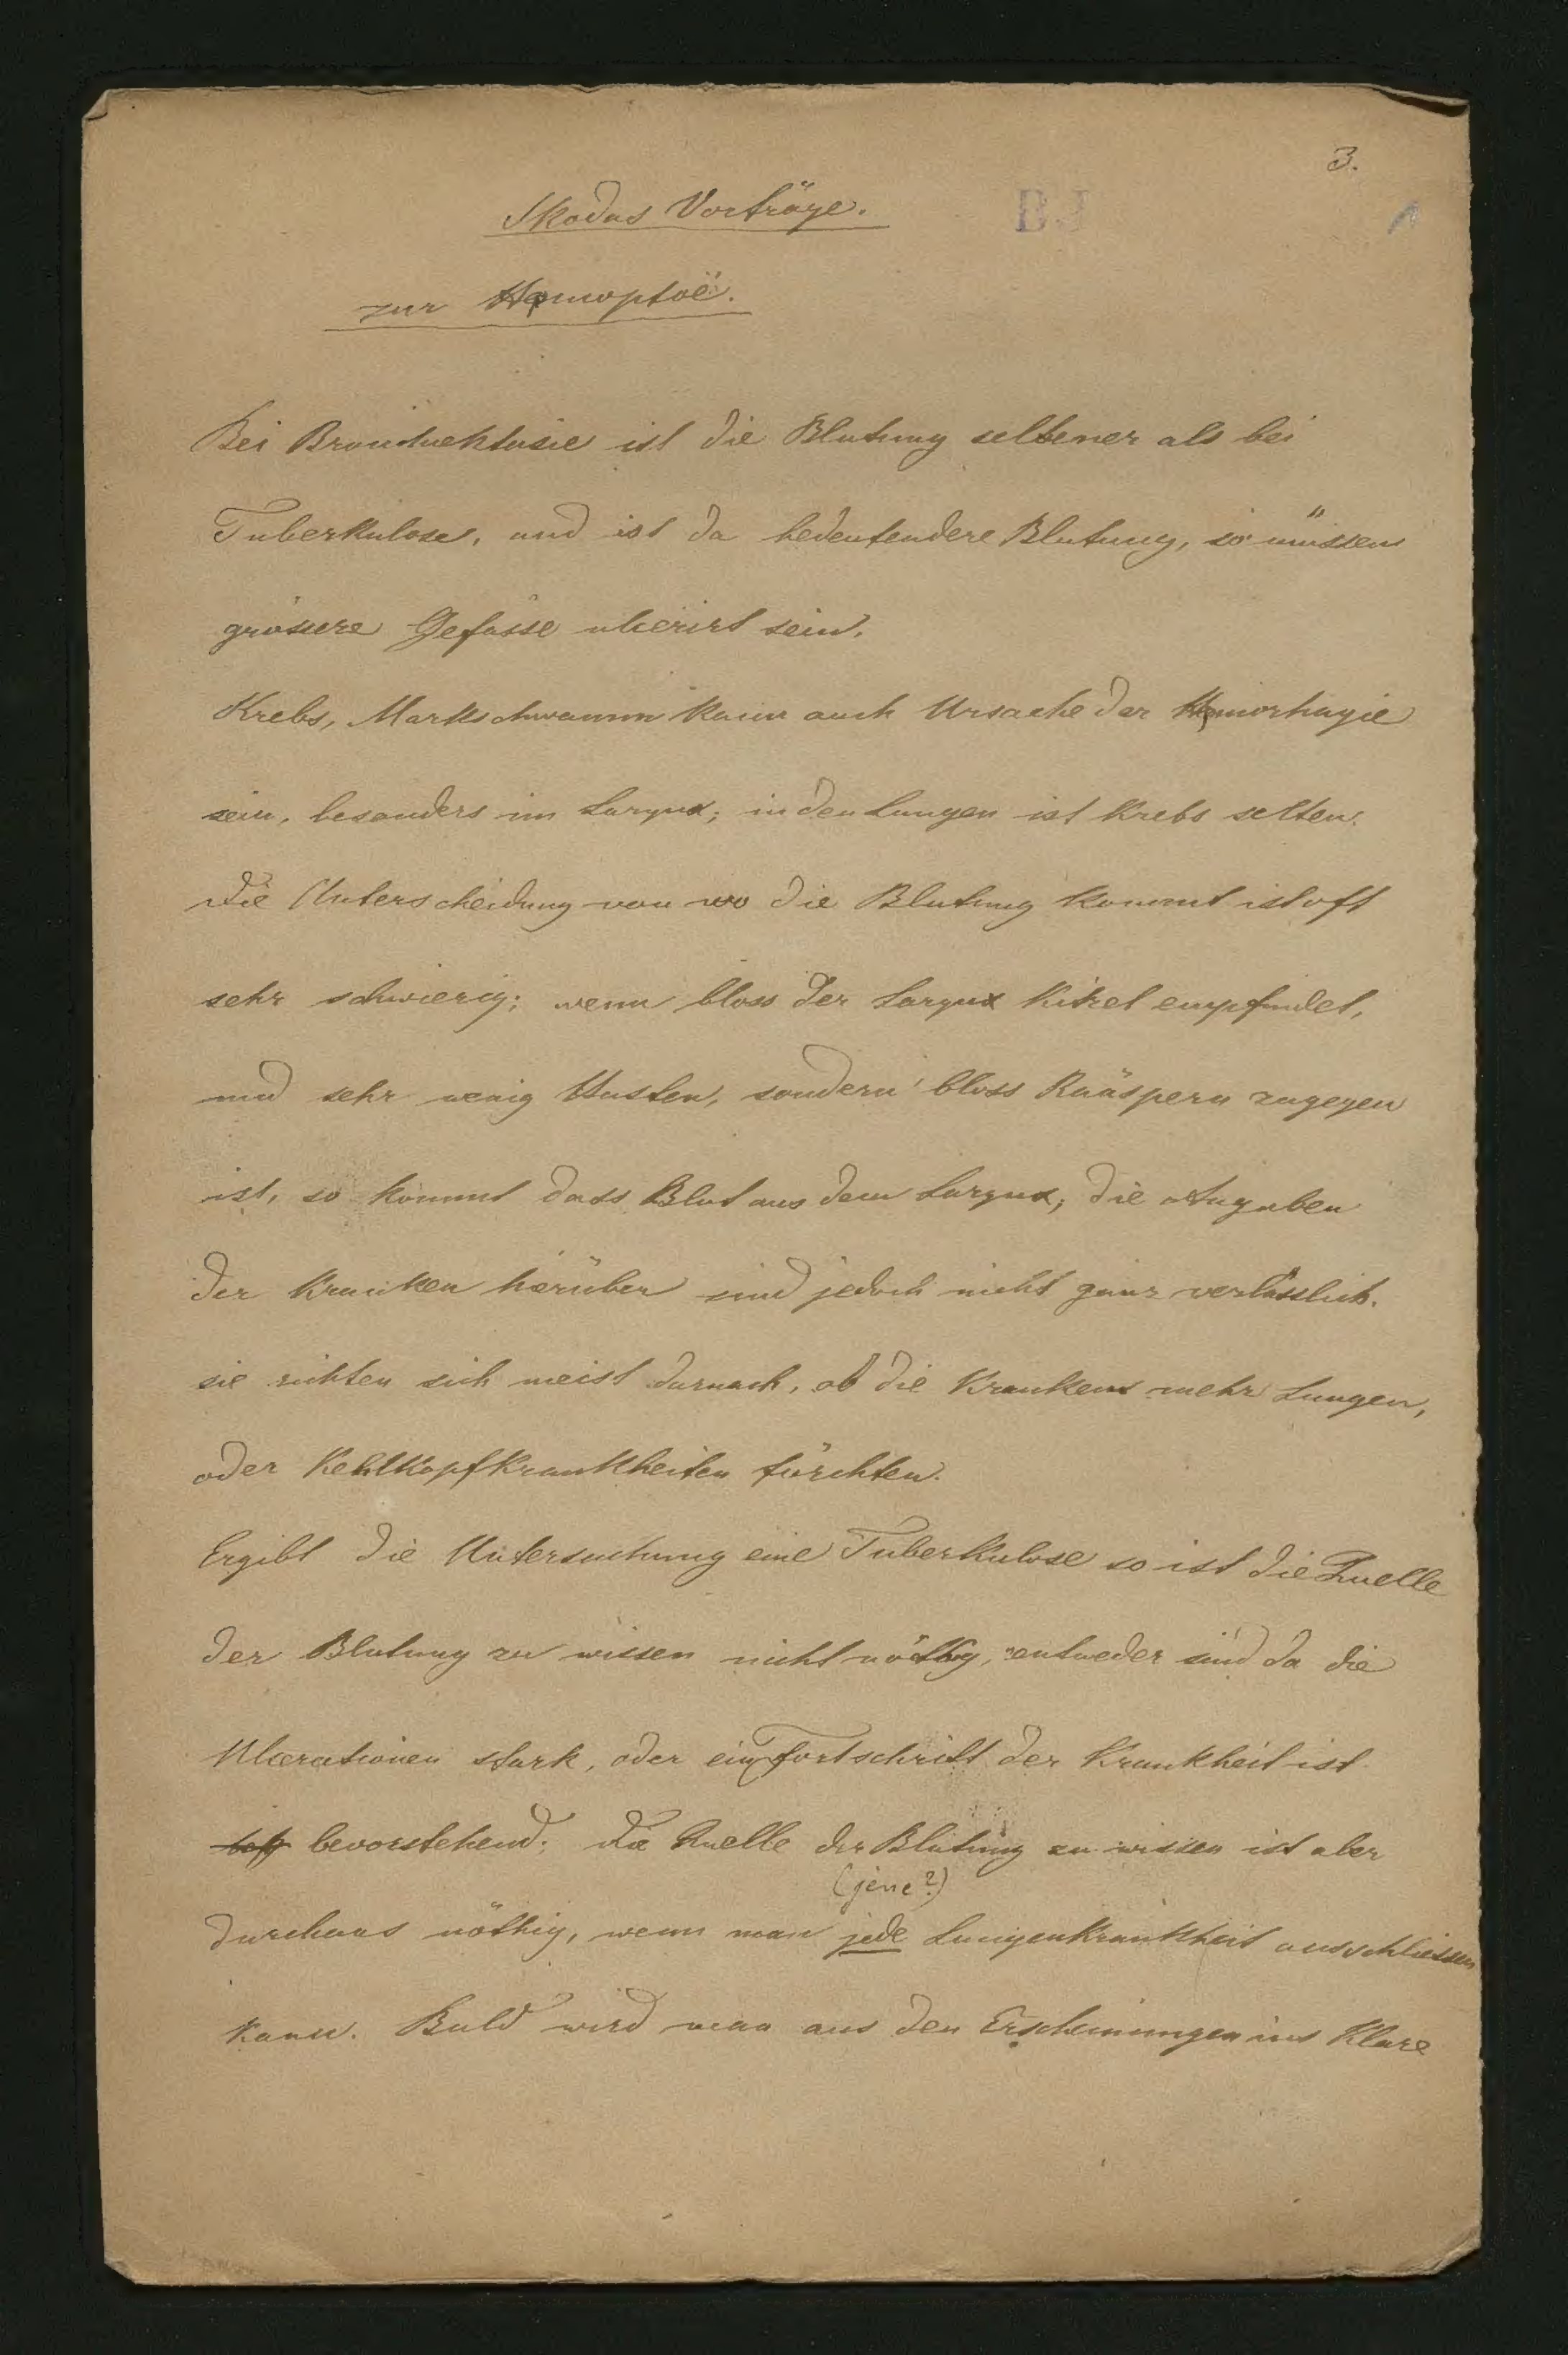 3.
Skodas Vorträge.
BJ
1
zur Hæmoptoë.
Bei Bronchiektasie ist die Blutung seltener als bei
Tuberkulose, und ist da bedeutendere Blutung, so müssen
grössere Gefässe ulcerirt sein.
Krebs, Markschwamm kann auch Ursache der Hæmorhagie
sein, besonders im Larynx; in den Lungen ist Krebs selten.
Die Unterscheidung von wo die Blutung kommt ist oft
sehr schwierig; wenn bloss der Larynx Kitzel empfindet,
und sehr wenig Husten, sondern bloss Räuspern zugegen
ist, so kommt dass Blut aus dem Larynx; die Angaben
der Kranken hierüber sind jedoch nicht ganz verlässlich.
sie richten sich meist darnach, ob die Kranken mehr Lungen,
oder Kehlkopfkrankheiten fürchten.
Ergibt die Untersuchung eine Tuberkulose so ist die Quelle
der Blutung zu wissen nicht nöthig, entweder sind da die
Ulcerationen stark, oder ein Fortschritt der Krankheit ist
bevorstehend; die Quelle der Blutung zu wissen ist aber
(jene?)
durchaus nöthig, wenn man jede Lungenkrankheit ausschliessen
kann. Bald wird man aus den Erscheinungen ins Klare